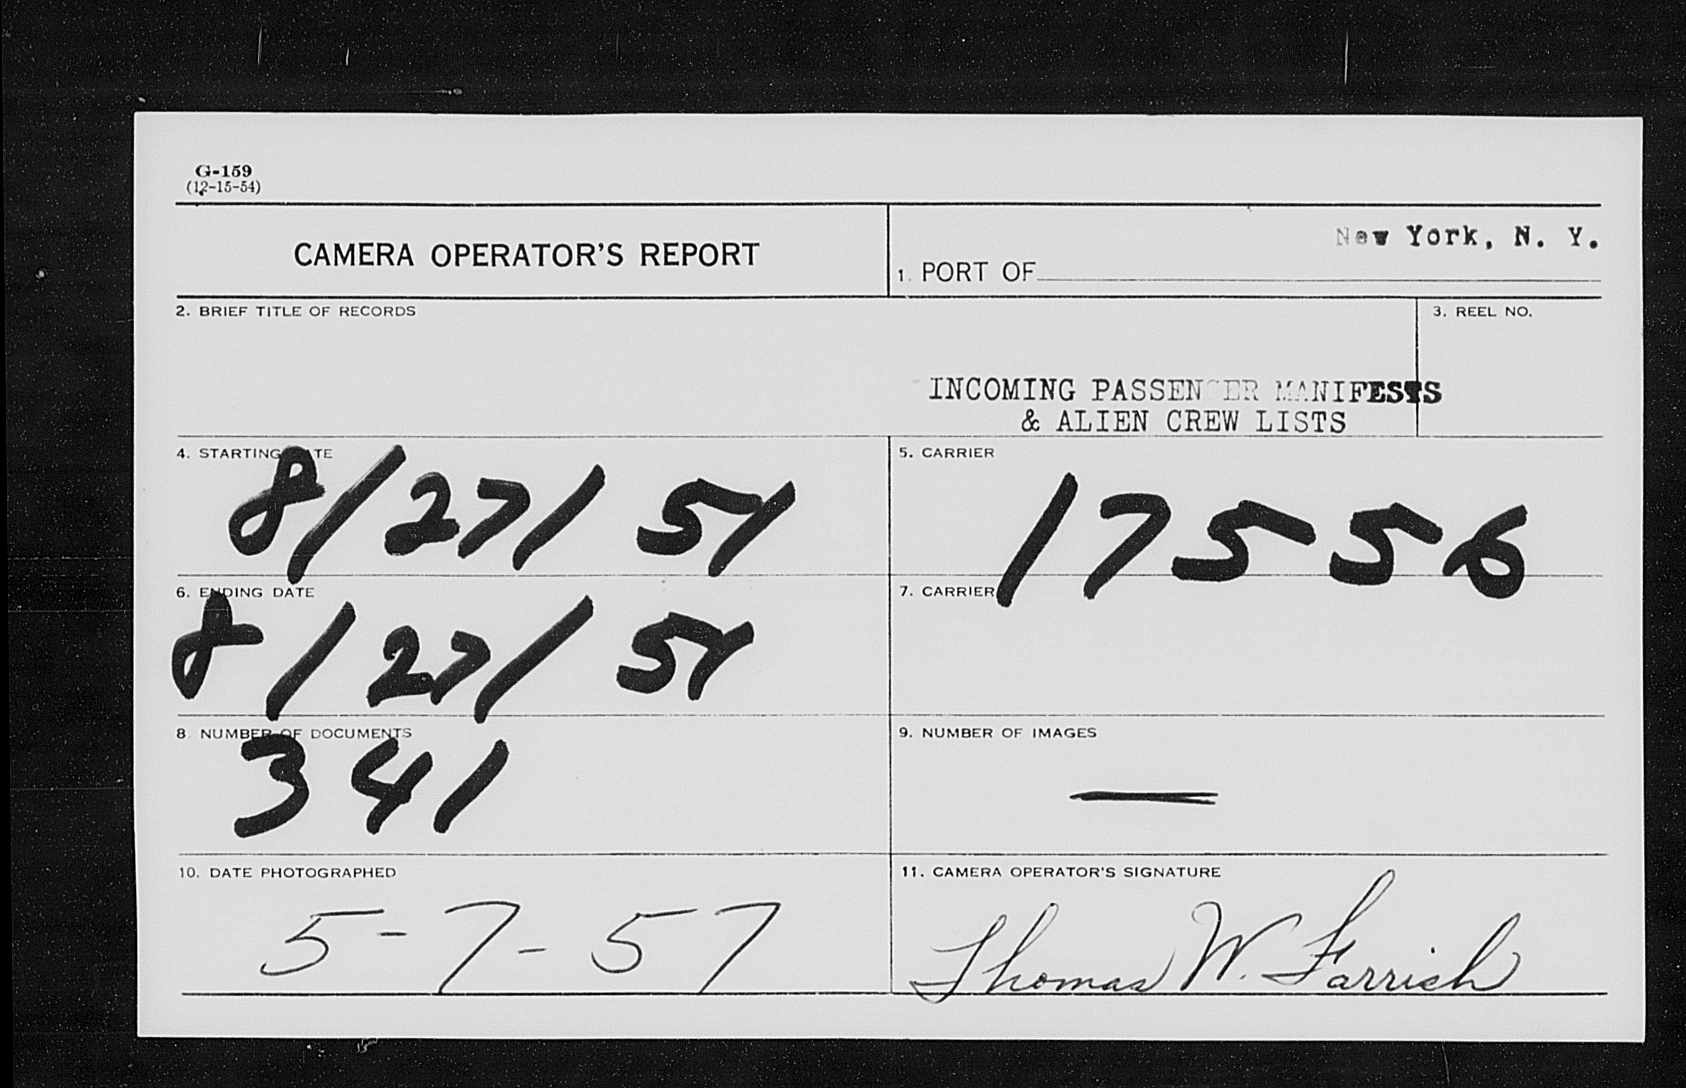 G-159
(12-15-54)
CAMERA OPERATOR'S REPORT
New York, N. Y.
1. PORT OF
2. BRIEF TITLE OF RECORDS
3. REEL NO.
INCOMING PASSENGER MANIFESTS
& ALIEN CREW LISTS
4. STARTING DATE
8/27/51
5. CARRIER
17556
6. ENDING DATE
8/27/51
7. CARRIER
8. NUMBER OF DOCUMENTS
341
9. NUMBER OF IMAGES
—
10. DATE PHOTOGRAPHED
5-7-57
11. CAMERA OPERATOR'S SIGNATURE
Thomas W. Farrish